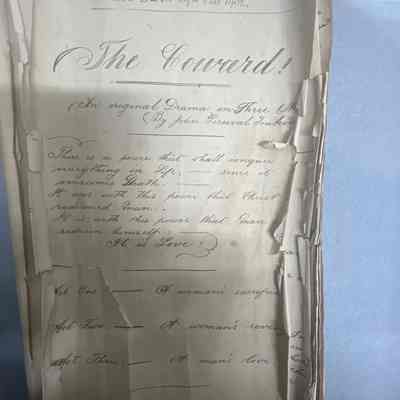 The Coward!
An original Drama in Three
By
There is a power that shall conquer
everything in Life; — since it
overcomes Death. —
It was with this power that Christ
redeemed man. -
It is with this power that Man
redeem himself: —
It is Love!
Act One: — A woman's sacrifice
Act Two: — A woman's
Act Three: — A man's love